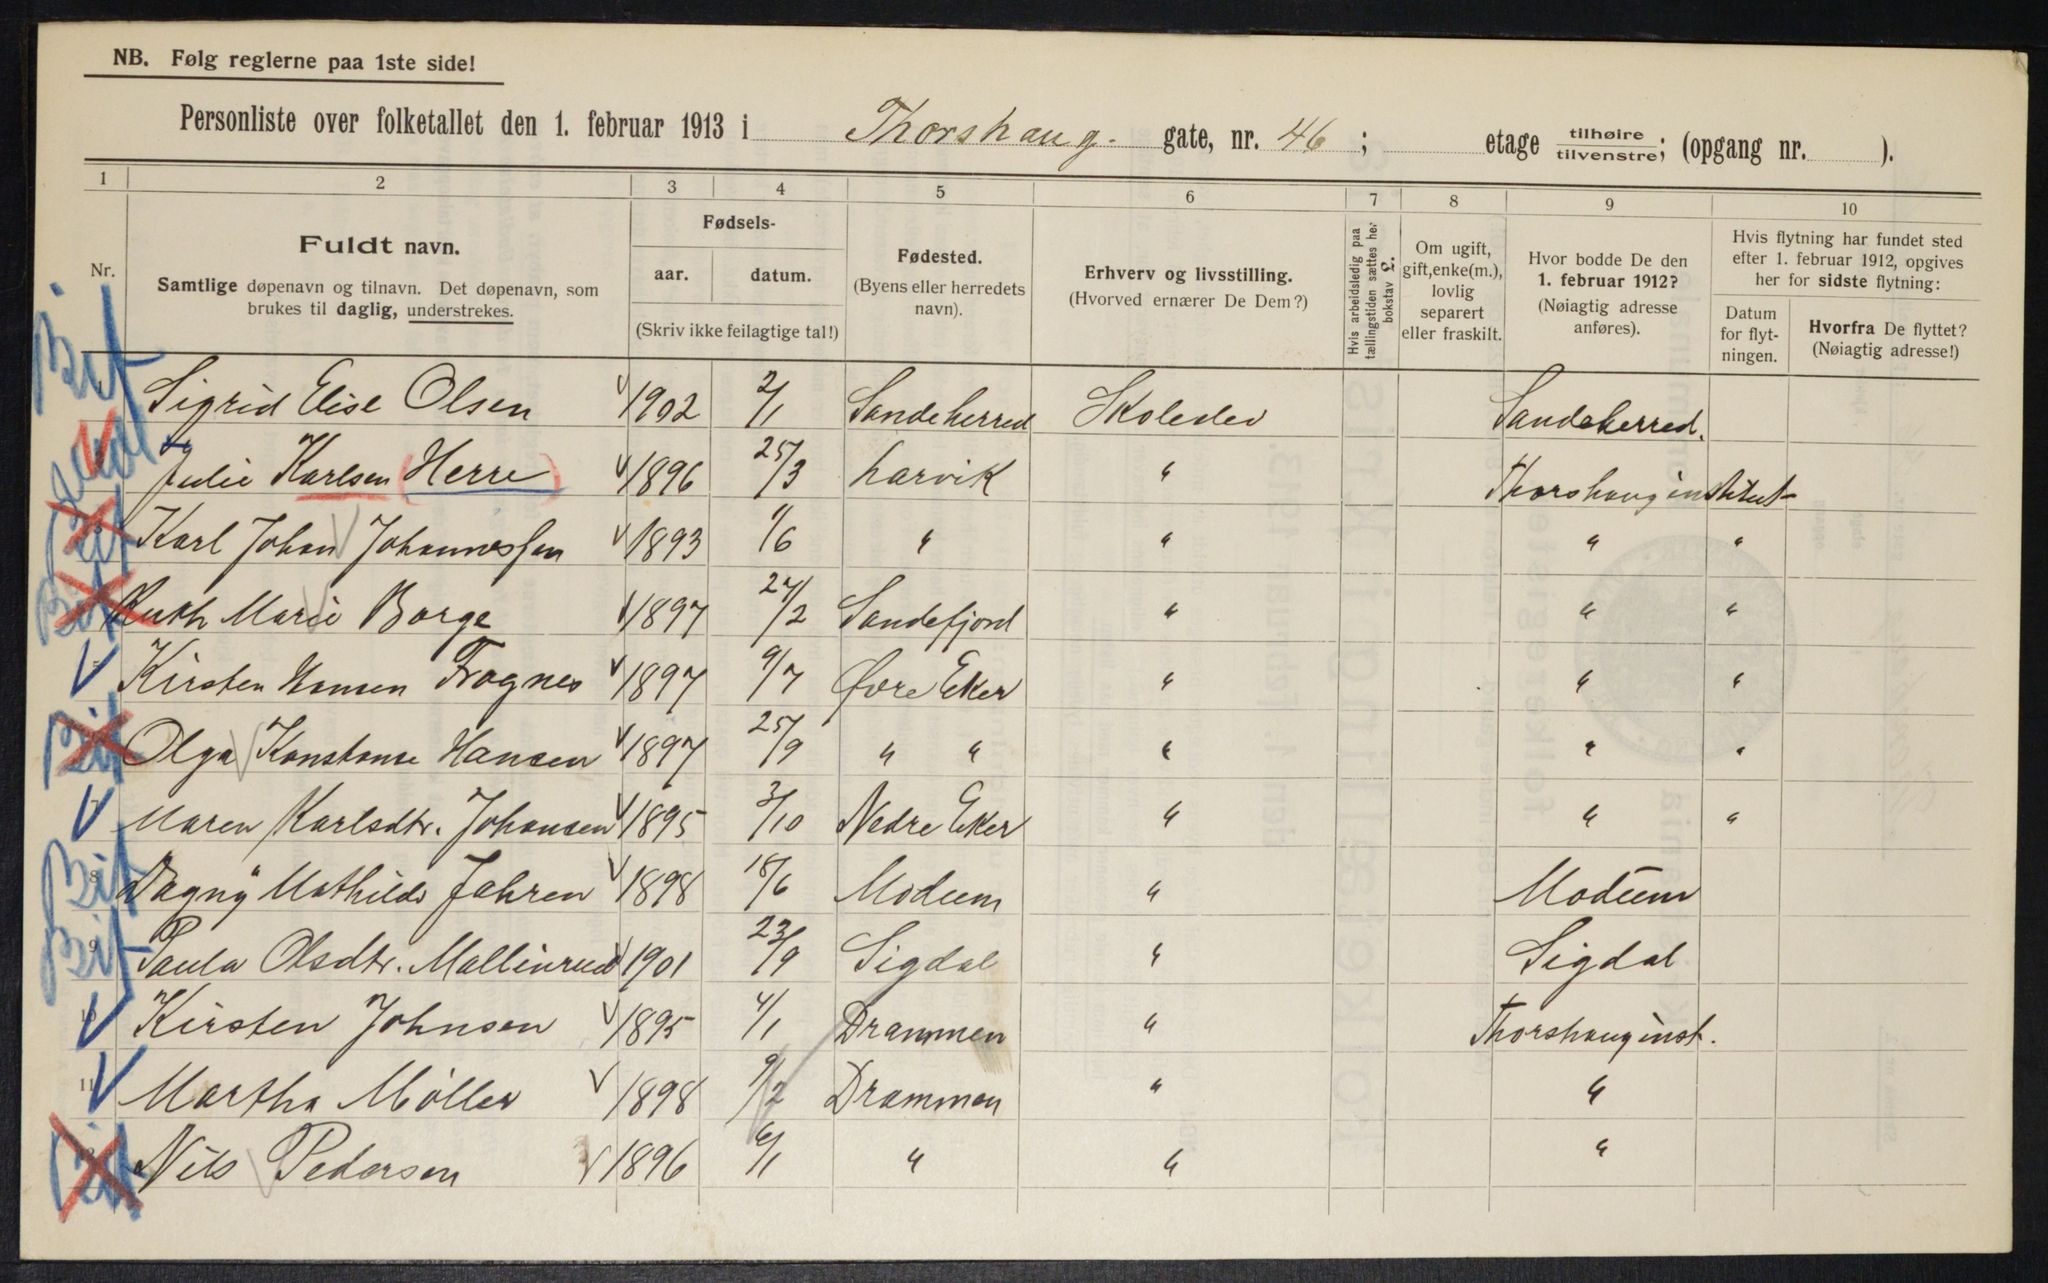 NB. Følg reglerne paa 1ste side!
Personliste over folketallet den 1. februar 1913 i Thorshaug. gate, nr. 46; etage tilhøire/tilvenstre; (opgang nr. ).
1 2 3 4 5 6 7 8 9 10
Nr.
Fuldt navn.
Samtlige døpenavn og tilnavn. Det døpenavn, som
brukes til daglig, understrekes.
Fødsels-
aar. datum.
(Skriv ikke feilagtige tal!)
Fødested.
(Byens eller herredets
navn).
Erhverv og livsstilling.
(Hvorved ernærer De Dem?)
Hvis arbeidsledig paa
tællingstiden sættes her
bokstav L.
Om ugift,
gift, enke(m.),
lovlig
separert
eller fraskilt.
Hvor bodde De den
1. februar 1912?
(Nøiagtig adresse
anføres).
Hvis flytning har fundet sted
efter 1. februar 1912, opgives
her for sidste flytning:
Datum
for flyt-
ningen.
Hvorfra De flyttet?
(Nøiagtig adresse!)
Sigrid Elise Olsen 1902 2/1 Sandeherred Skoleelev Sandeherred.
Julie Karlsen (Herre) 1896 25/3 Larvik " Thorshaug institut
Karl Johan Johannessen 1893 11/6 " " " "
Ruth Marie Borge 1897 27/2 Sandefjord " " "
5 Kirsten Hansen Frognes 1897 9/7 Øvre Eker " " "
Olga Konstanse Hansen 1897 25/9 " " " " "
7 Maren Karlsdtr. Johansen 1895 3/10 Nedre Eker " " "
8 Dagny Mathilde Jahren 1898 18/6 Modum " Modum
9 Paula Olsdtr. Mallinrud 1901 23/9 Sigdal " Sigdal
10 Kirsten Johnsen 1895 4/1 Drammen " Thorshaug inst.
11 Martha Møller 1898 9/2 Drammen " "
12 Nils Pedersen 1896 6/1 " " "